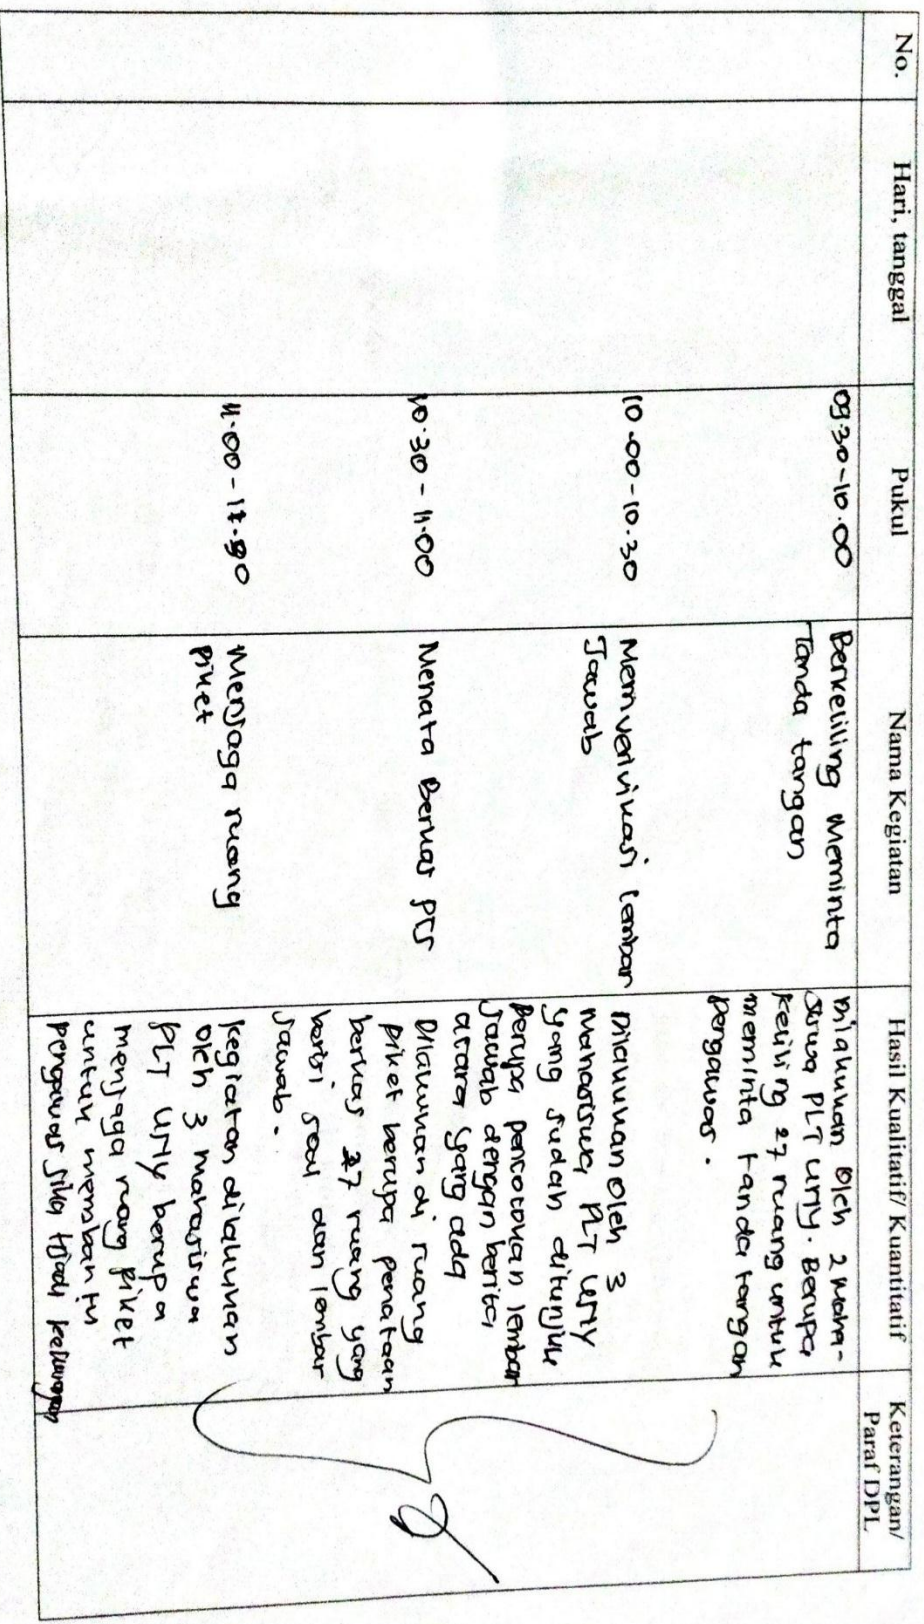 No. Hari, tanggal Pukul Nama Kegiatan Hasil Kualitatif/ Kuantitatif Keterangan/
Paraf DPL
09.30-10.00
Berkeliling Meminta
Tanda tangan
Dilakukan oleh 2 Maha-
siswa PLT UNY. Berupa
keliling 27 ruang untuk
meminta tanda tangan
Pengawas.
10.00-10.30
Memverivikasi lembar
Jawab
Dilakukan oleh 3
Mahasiswa PLT UNY
yang sudah ditunjuk
Berupa pencocokan lembar
Jawab dengan berita
acara yang ada
10.30 - 11.00
Menata Berkas PTS
Dilakukan di ruang
piket berupa penataan
berkas 27 ruang yang
berisi soal dan lembar
Jawab.
11.00 -
Menjaga ruang
piket
Kegiatan dilakukan
oleh 3 mahasiswa
PLT UNY berupa
menjaga ruang piket
untuk membantu
pengawas jika trjadi kekurangan